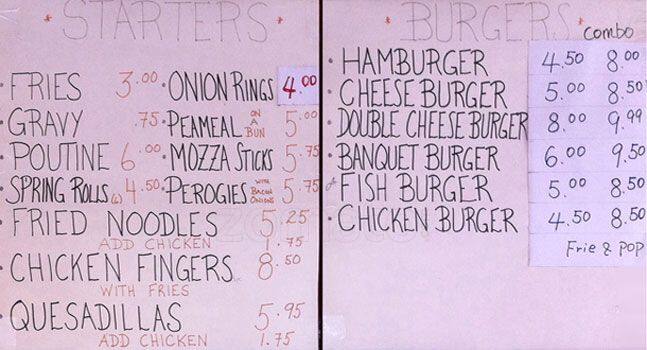 * STARTERS *
• FRIES 3.00 • ONION RINGS 4.00
• GRAVY .75 • PEAMEAL ON A BUN 5.00
• POUTINE 6.00 • MOZZA STICKS 5.75
• SPRING ROLLS (6) 4.50 • PEROGIES WITH BACON ONIONS 5.75
• FRIED NOODLES 5.25
ADD CHICKEN 1.75
• CHICKEN FINGERS 8.50
WITH FRIES
• QUESADILLAS 5.95
ADD CHICKEN 1.75
* BURGERS *
combo
• HAMBURGER 4.50 8.00
• CHEESE BURGER 5.00 8.50
• DOUBLE CHEESE BURGER 8.00 9.99
• BANQUET BURGER 6.00 9.50
FISH BURGER 5.00 8.50
• CHICKEN BURGER 4.50 8.50
Frie & POP